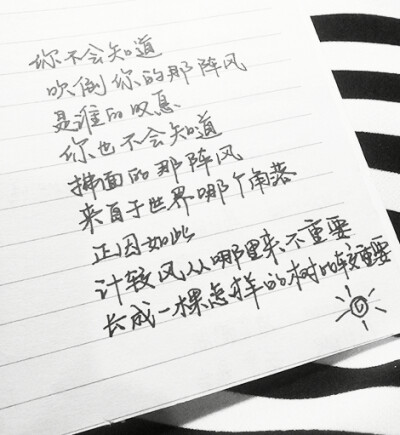 你不会知道
吹倒你的那阵风
是谁的叹息
你也不会知道
拂面的那阵风
来自于世界哪个角落
正因如此
计较风从哪里来不重要
长成一棵怎样的树比较重要